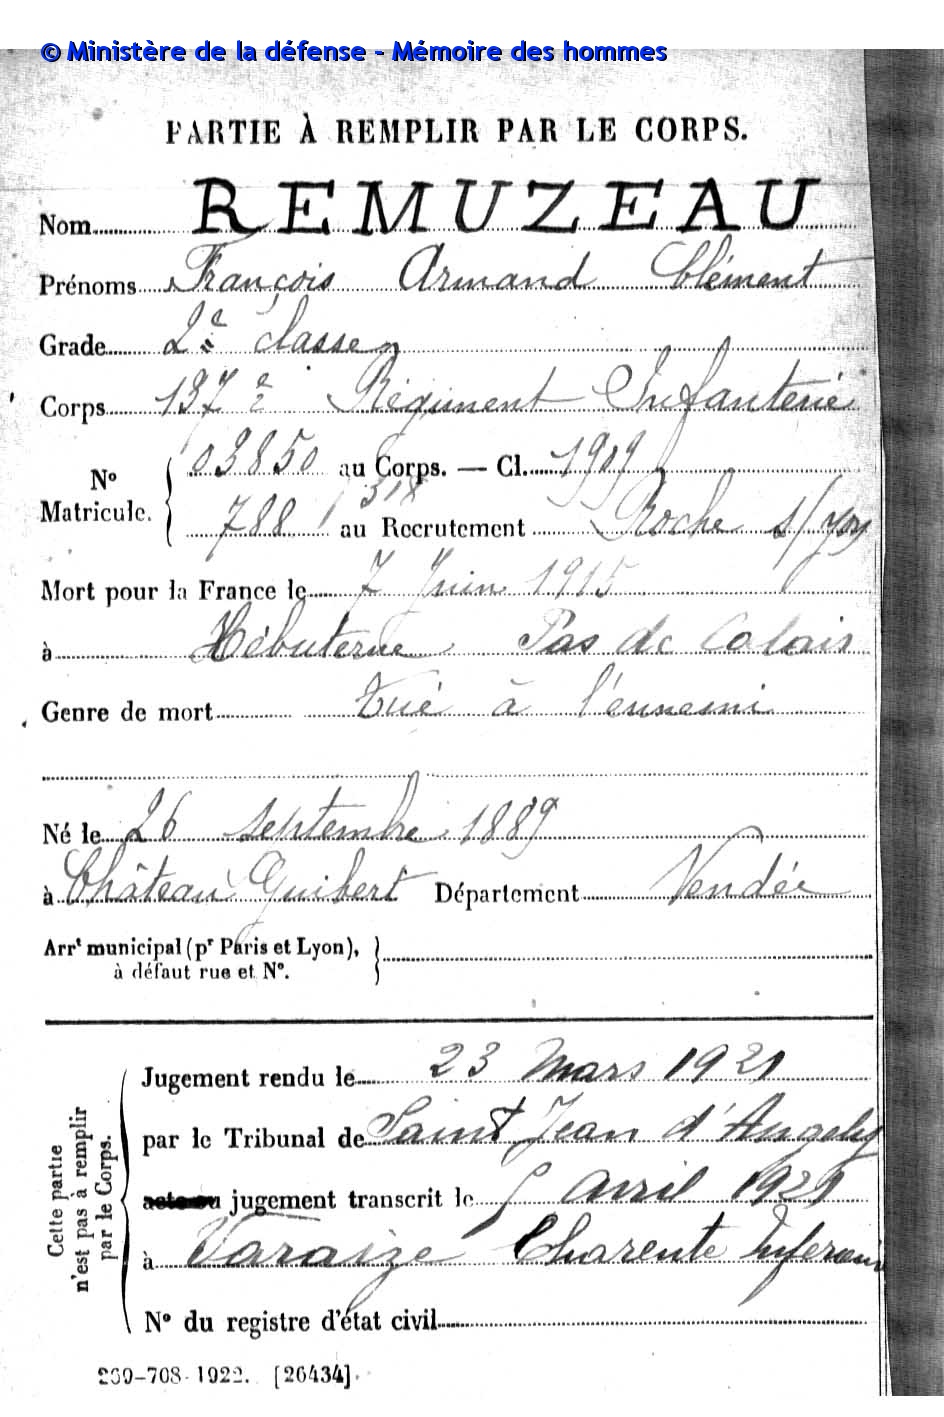 © Ministère de la défense - Mémoire des hommes
PARTIE À REMPLIR PAR LE CORPS.
Nom REMUZEAU
Prénoms François Armand Clément
Grade 2e classe
Corps 137e Régiment Infanterie
No Matricule. { 03850 au Corps. — Cl. 1909
318
788 au Recrutement Roche s/yon
Mort pour la France le 7 Juin 1915
à Hébuterne Pas de Calais
Genre de mort Tué à l'ennemi
Né le 26 septembre 1889
à Château Guibert Département Vendée
Arrt municipal (pr Paris et Lyon), }
à défaut rue et No.
Cette partie n'est pas à remplir par le Corps.
Jugement rendu le 23 Mars 1921
par le Tribunal de Saint Jean d'Angely
acte ou jugement transcrit le 5 Avril 1921
à Varaize Charente Inférieure
No du registre d'état civil
1922. [26434].